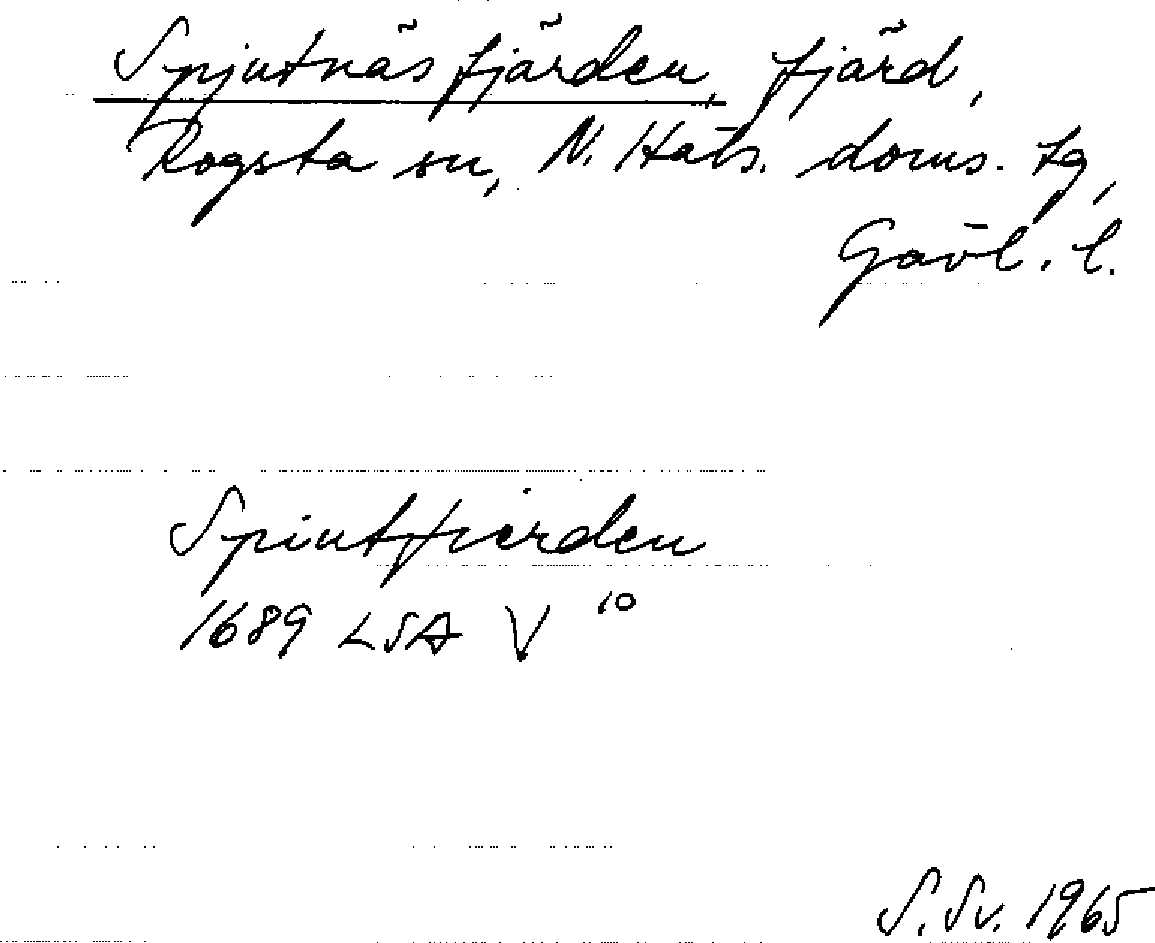 Spjutnäsfjärden, fjärd,
Rogsta sn, N. Häls. doms. tg,
Gävl. l.
Spiutfierden
1689 LSA V 10
S. Sv. 1965